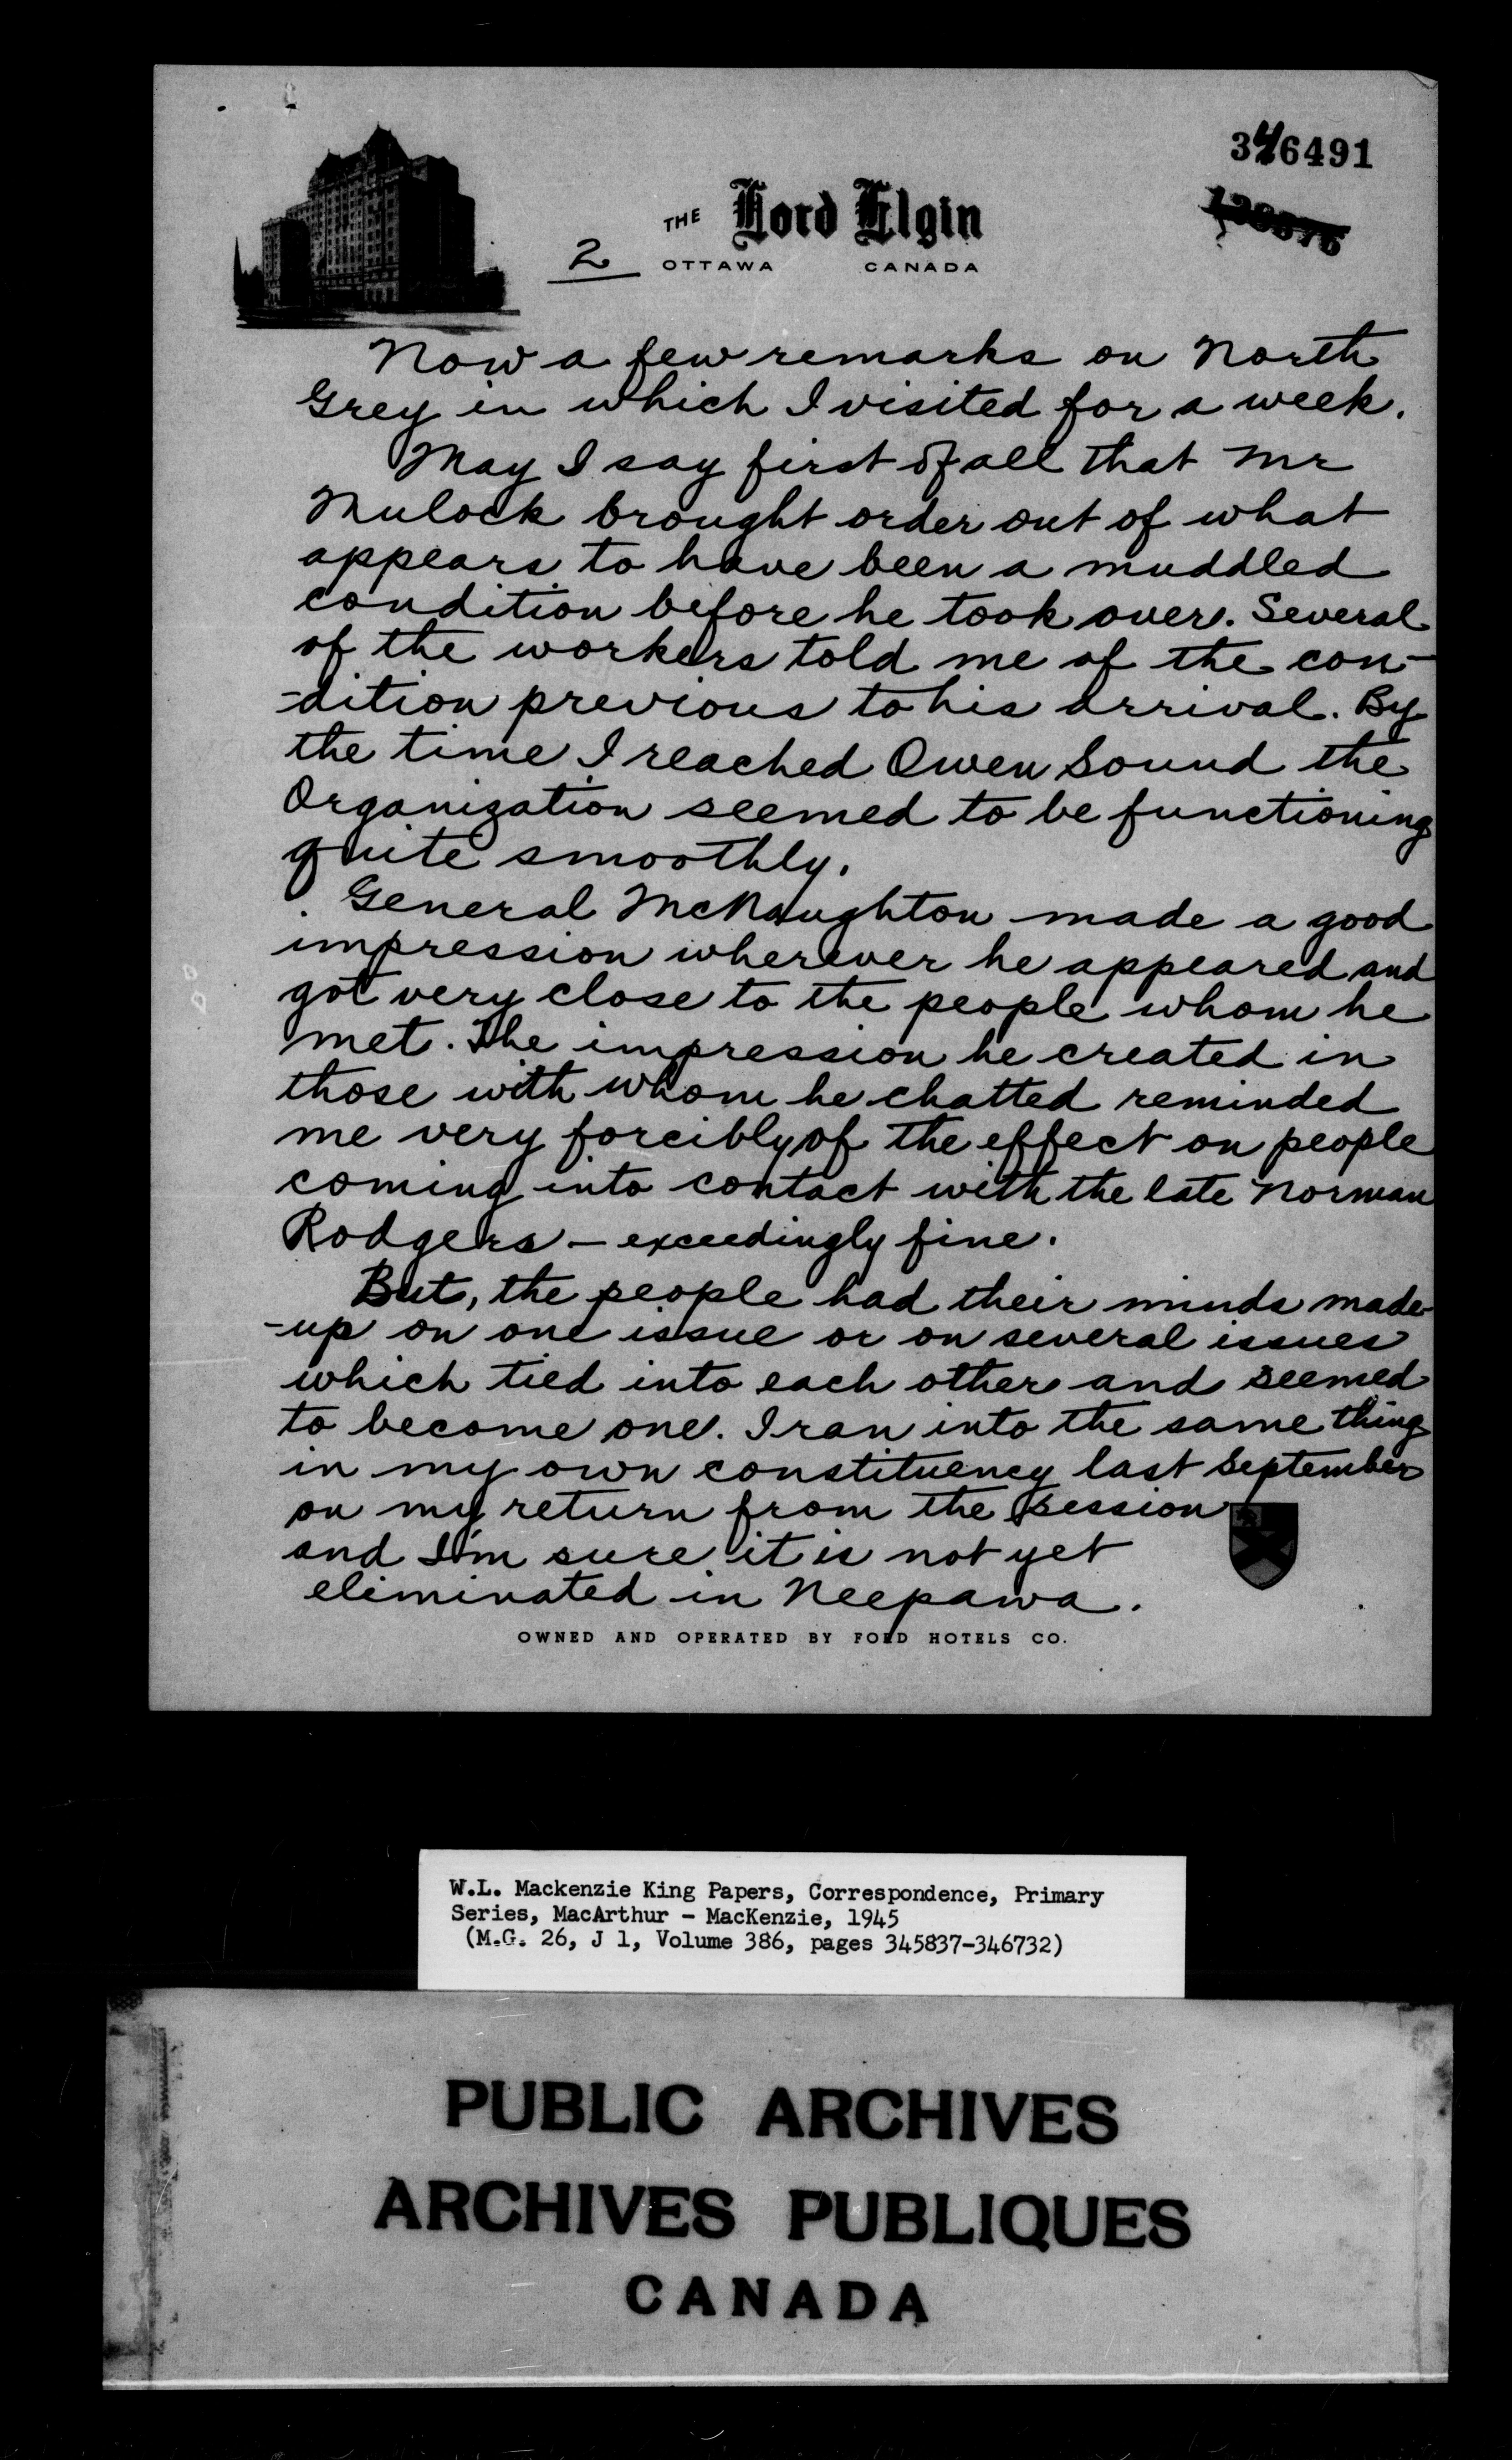 346491
THE Lord Elgin
2 OTTAWA CANADA
Now a few remarks on North
Grey in which I visited for a week.
May I say first of all that Mr
Mulock brought order out of what
appears to have been a muddled
condition before he took over. Several
of the workers told me of the con-
-dition previous to his arrival. By
the time I reached Owen Sound the
Organization seemed to be functioning
quite smoothly.
General McNaughton made a good
impression wherever he appeared and
got very close to the people whom he
met. The impression he created in
those with whom he chatted reminded
me very forcibly of the effect on people
coming into contact with the late Norman
Rodgers – exceedingly fine.
But, the people had their minds made
-up on one issue or on several issues
which tied into each other and seemed
to become one. I ran into the same thing
in my own constituency last September
on my return from the session
and I'm sure it is not yet
eliminated in Neepawa.
OWNED AND OPERATED BY FORD HOTELS CO.
W.L. Mackenzie King Papers, Correspondence, Primary
Series, MacArthur - MacKenzie, 1945
(M.G. 26, J 1, Volume 386, pages 345837-346732)
PUBLIC ARCHIVES
ARCHIVES PUBLIQUES
CANADA